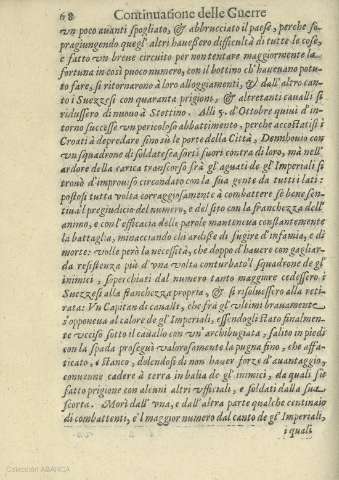 68 Continuatione delle Guerre
vn poco auanti spogliato, & abbrucciato il paese, perche so-
pragiungendo quegl'altri hauessero difficultà di tutte le cose,
e fatto vn breue circuito per non tentare maggiormente la
fortuna in così puoco numero, con il bottino ch'haueuano potu-
to fare, si ritornarono à loro alloggiamenti, & dall'altro can-
to i Suezzesi con quaranta prigioni, & altretanti caualli si
ridussero di nuouo à Stettino. Alli 5. d'Ottobre quiui d'in-
torno successe vn pericoloso abbattimento, perche accostatisi i
Croati à depredare sino sù le porte della Città, Demhouio con
vn squadrone di soldatesca sortì fuori contra di loro, mà nell'
ardore della carica transcorso frà gl'aguati de gl'Imperiali si
trouò d'improuiso circondato con la sua gente da tutti i lati:
postosi tutta volta corraggiosamente à combattere sè bene sen-
tiua'l pregiudicio del numero, e del sito con la franchezza dell'
animo, e con l'efficacia delle parole manteneua constantemente
la battaglia, minacciando chi ardisse di fugire d'infamia, e di
morte: volle però la necessità, che doppo d'hauere con gagliar-
da resistenza più d'vna volta conturbato'l squadrone de gl'
inimici, soperchiati dal numero tanto maggiore cedessero i
Suezzesi alla franchezza propria, & si risoluessero alla reti-
rata: Vn Capitan di caualli, che frà gl'vltimi brauamente
s'opponeua al calore de gl'Imperiali, essendogli stato finalmen-
te vcciso sotto il cauallo con vn'archibugiata, salito in piedi
con la spada proseguì valorosamente la pugna sino, che affa-
ticato, e stanco, dolendosi di non hauer forze d'auantaggio,
conuenne cadere à terra in balia de gl'inimici, da quali sù
fatto prigione con alcuni altri vfficiali, e soldati dalla sua
scorta. Morì dall'vna, e dall'altra parte qualche centinaio
di combattenti, e'l maggior numero dal canto de gl'Imperiali,
i quali
Colección ABANCA